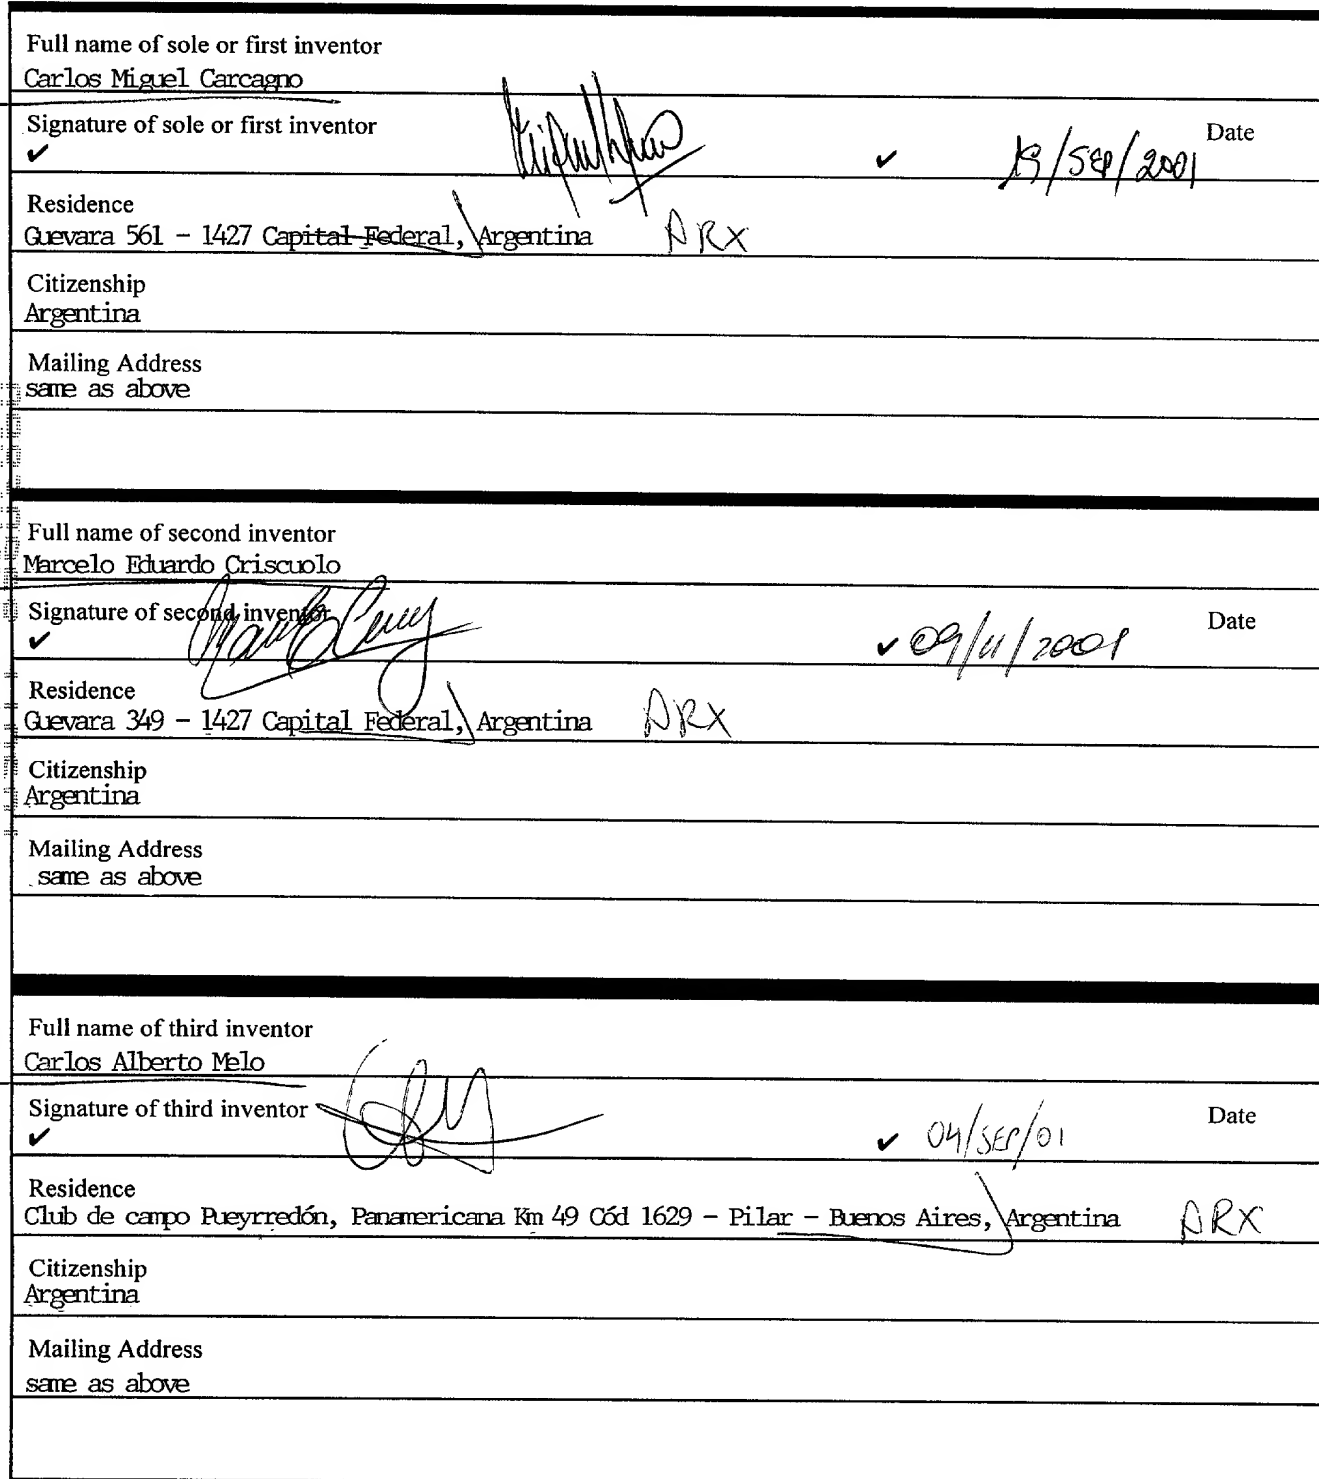 Full name of sole or first inventor
Carlos Miguel Carcagno
Signature of sole or first inventor
Date
✔ ✔ /SEP/2001
Residence
Guevara 561 - 1427 Capital Federal, Argentina ARX
Citizenship
Argentina
Mailing Address
same as above
Full name of second inventor
Marcelo Eduardo Criscuolo
Signature of second inventor
Date
✔ ✔ 09/11/2001
Residence
Guevara 349 - 1427 Capital Federal, Argentina ARX
Citizenship
Argentina
Mailing Address
same as above
Full name of third inventor
Carlos Alberto Melo
Signature of third inventor
Date
✔ ✔ 04/SEP/01
Residence
Club de campo Pueyrredón, Panamericana Km 49 Cód 1629 - Pilar - Buenos Aires, Argentina ARX
Citizenship
Argentina
Mailing Address
same as above